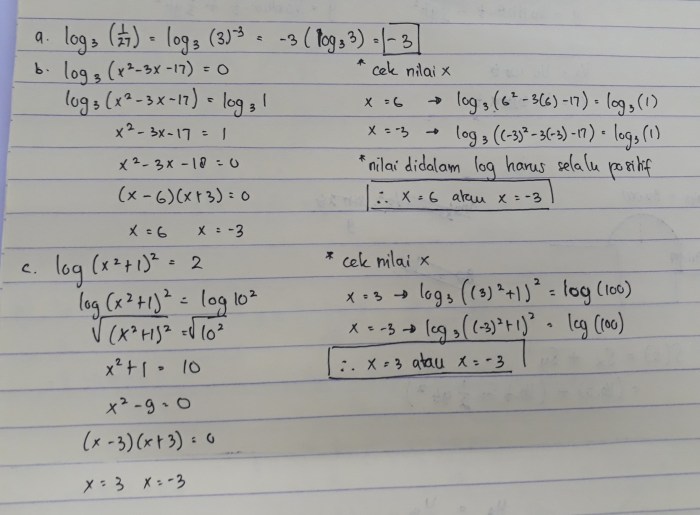 a. log₃ (1/27) = log₃ (3)⁻³ = -3 (log₃ 3) = -3
b. log₃ (x²-3x-17) = 0
log₃ (x²-3x-17) = log₃ 1
x²-3x-17 = 1
x²-3x-18 = 0
(x-6)(x+3) = 0
x = 6 x = -3
* cek nilai x
x = 6 → log₃ (6²-3(6)-17) = log₃ (1)
x = -3 → log₃ ((-3)²-3(-3)-17) = log₃ (1)
*nilai didalam log harus selalu positif
∴ x = 6 atau x = -3
c. log (x²+1)² = 2
log (x²+1)² = log 10²
√(x²+1)² = √10²
x²+1 = 10
x²-9 = 0
(x-3)(x+3) = 0
x = 3 x = -3
* cek nilai x
x = 3 → log₃ ((3)²+1)² = log (100)
x = -3 → log₃ ((-3)²+1)² = log (100)
∴ x = 3 atau x = -3